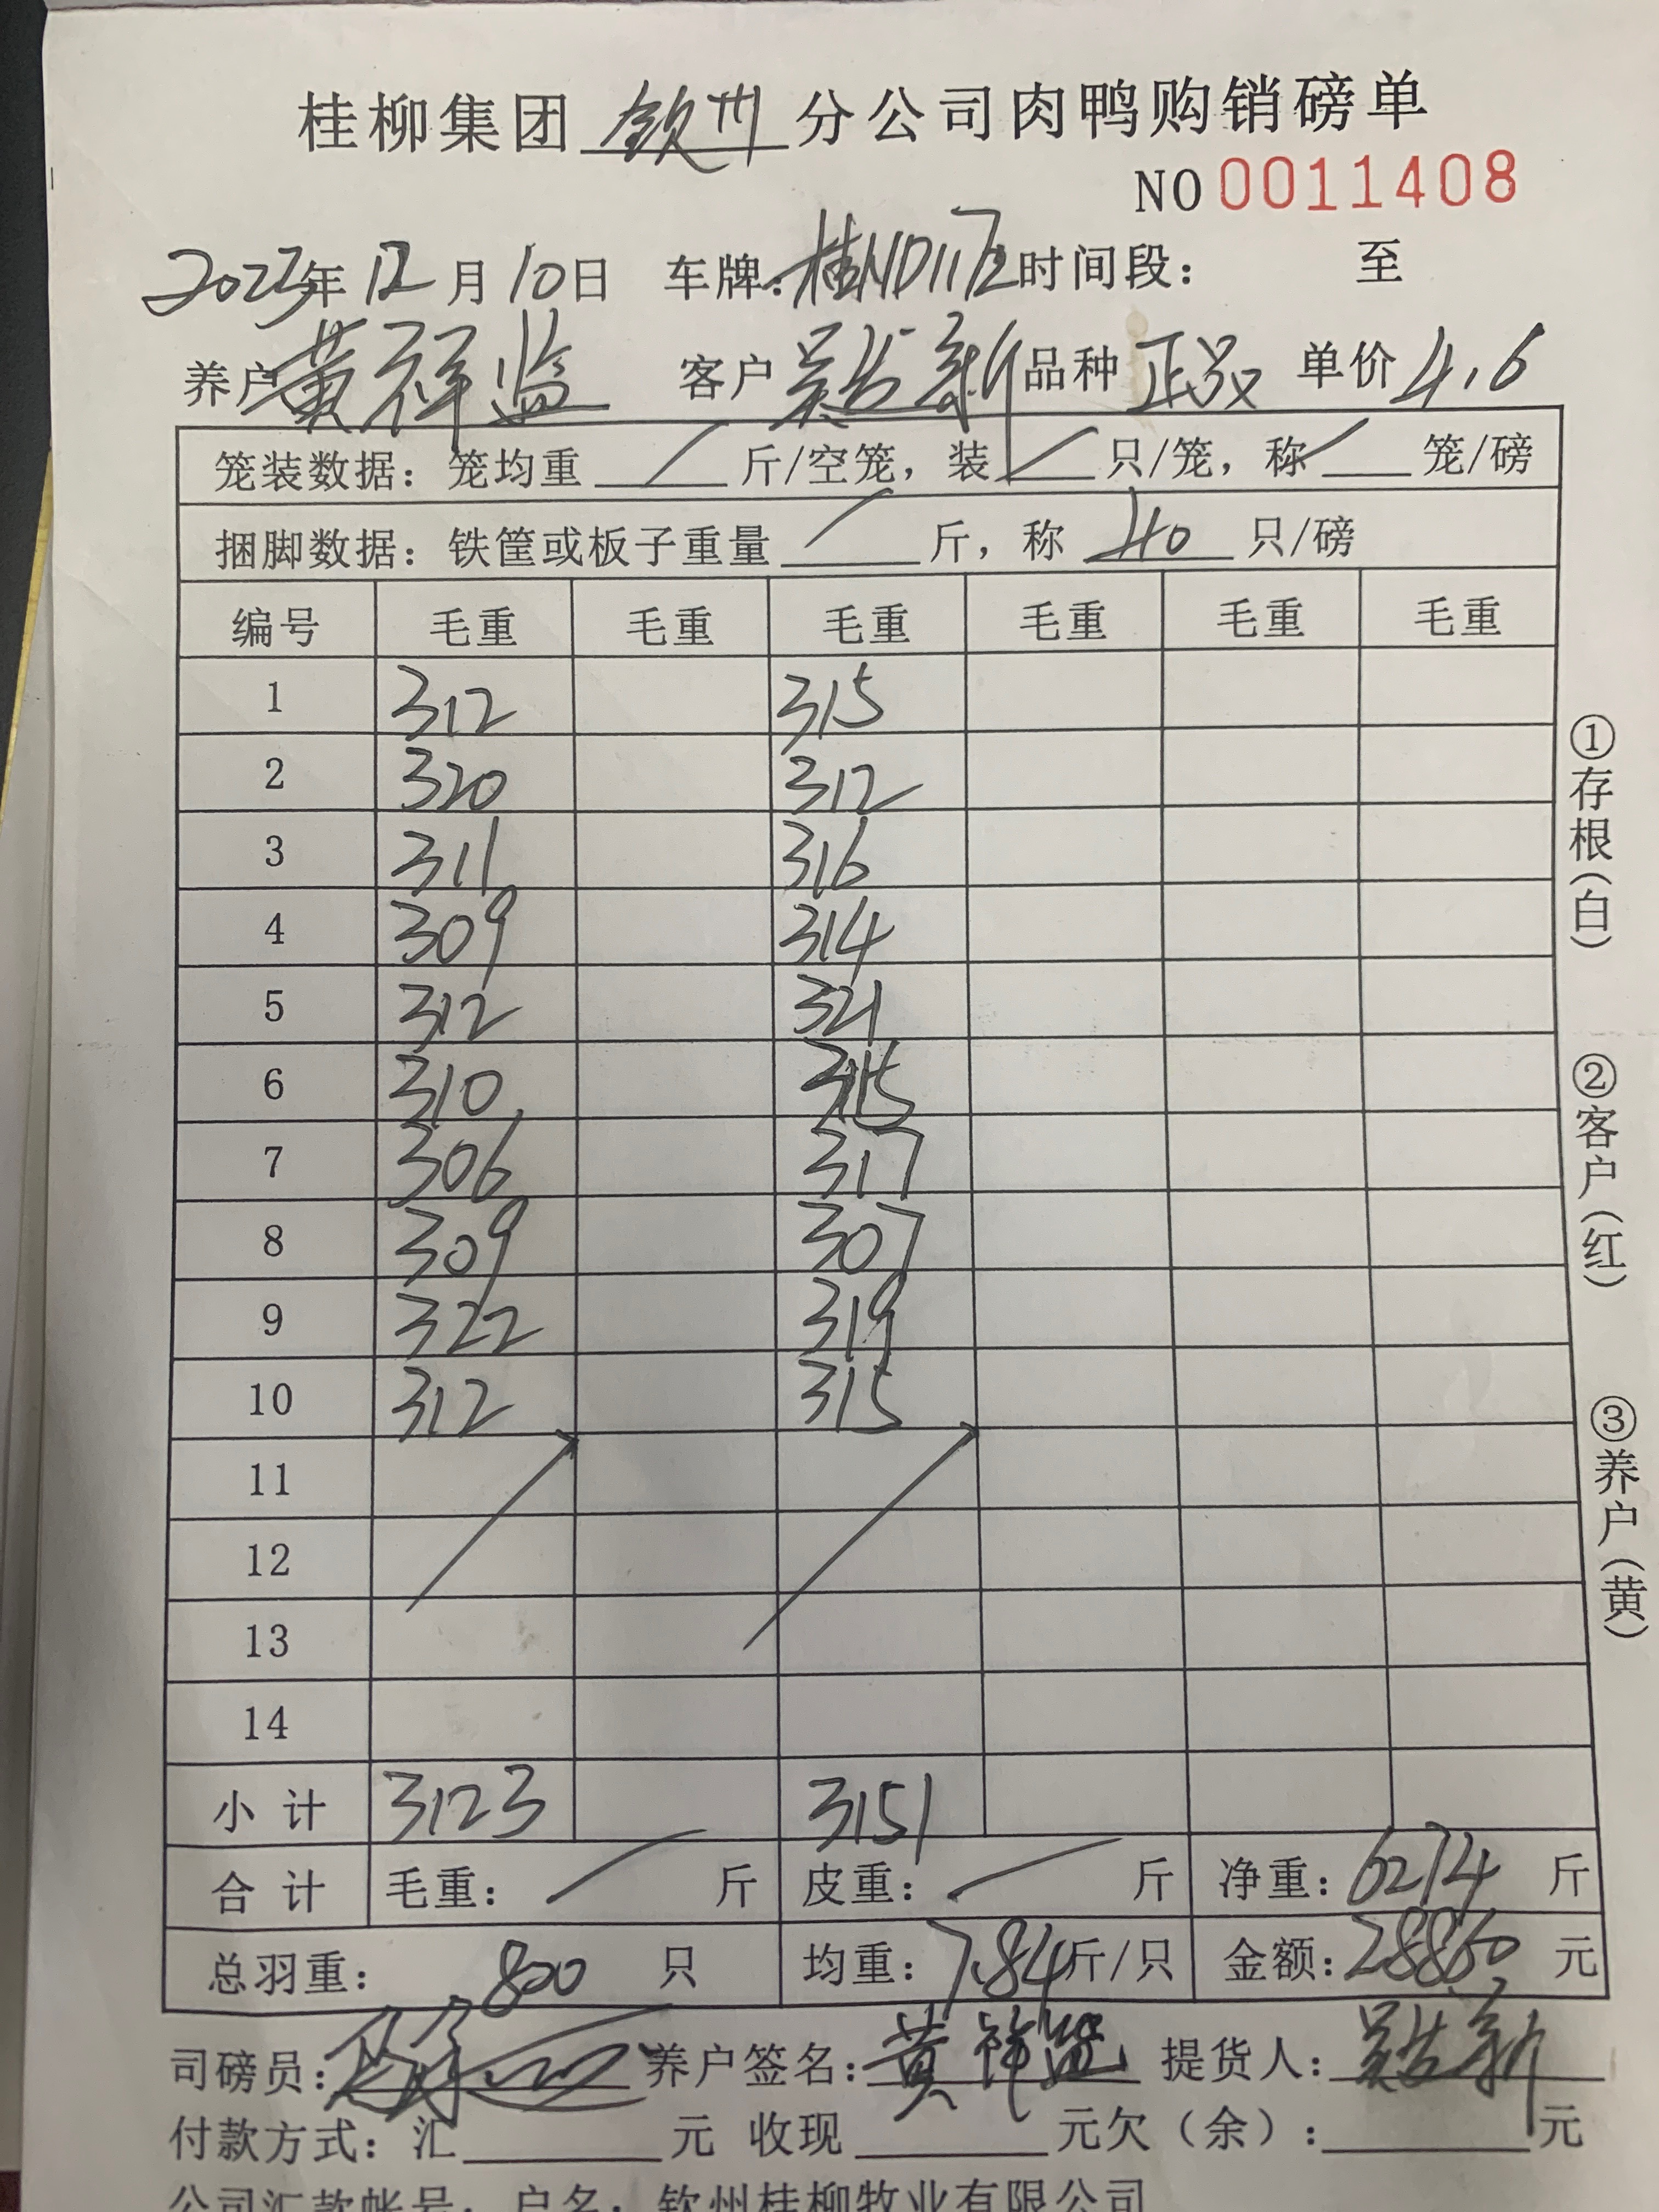 桂柳集团 钦州 分公司肉鸭购销磅单
NO 0011408
2023年 12 月 10 日 车牌:桂ND1172 时间段: 至
养户 黄祥监 客户 吴发新 品种 正品 单价 4.6
笼装数据: 笼均重 / 斤/空笼, 装 / 只/笼, 称 / 笼/磅
捆脚数据: 铁筐或板子重量 / 斤, 称 40 只/磅
编号 毛重 毛重 毛重 毛重 毛重 毛重
1 312 315
2 320 312
3 311 316
4 309 314
5 312 321
6 310 315
7 306 317
8 309 307
9 322 319
10 312 315
11
12
13
14
小计 3123 3151
合计 毛重: / 斤 皮重: / 斤 净重: 6274 斤
总羽重: 800 只 均重: 7.84 斤/只 金额: 28860 元
司磅员: 养户签名: 黄祥监 提货人: 吴发新
付款方式: 汇 元 收现 元欠(余): 元
公司汇款帐号: 户名: 钦州桂柳牧业有限公司
①存根(白)
②客户(红)
③养户(黄)